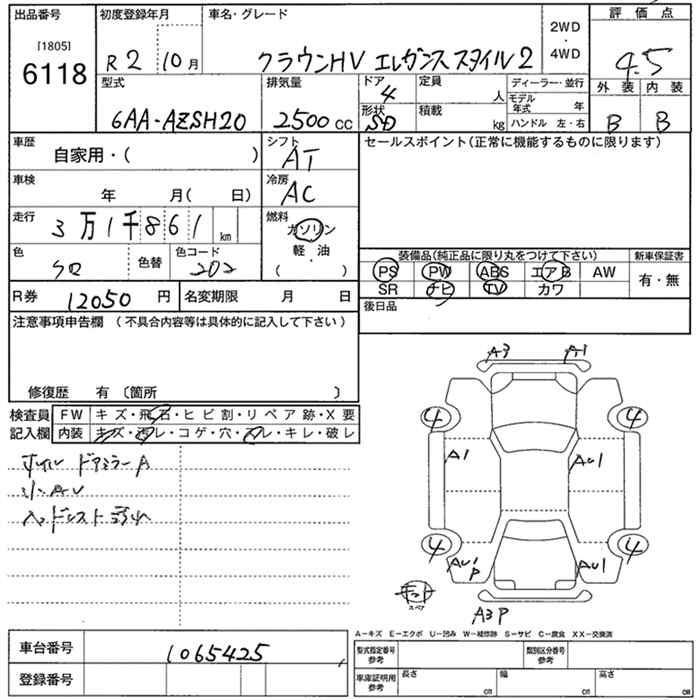 出品番号
[1805]
6118
初度登録年月
R2 10月
車名・グレード
クラウンHV エレガンススタイル2
2WD
・
4WD
評価点
4.5
外装 内装
B B
型式
6AA-AZSH20
排気量
2500 CC
ドア
4
形状
SD
定員
人
積載
kg
ディーラー・並行
モデル年式 年
ハンドル 左・右
車歴
自家用・( )
シフト
AT
車検
年 月( 日)
冷房
AC
走行
3万1千861 km
燃料
ガソリン
軽・油
( )
色
クロ
色替
色コード
202
R券 12050 円
名変期限 月 日
セールスポイント(正常に機能するものに限ります)
装備品(純正品に限り丸をつけて下さい)
PS PW ABS エアB AW
SR ナビ TV カワ
新車保証書
有・無
後日品
注意事項申告欄 (不具合内容等は具体的に記入して下さい)
修復歴 有 〔箇所 〕
検査員
記入欄
FW キズ・飛石・ヒビ割・リペア跡・X要
内装 キズ・汚レ・コゲ・穴・スレ・キレ・破レ
ホイル ドアミラーA
小AU
ヘッドレスト
A3 A1
4 4
A1 AU1
4 4
AU1P AU1
スペア
A3P
A-キズ E-エクボ U-凹み W-補修跡 S-サビ C-腐食 XX-交換済
車台番号 1065425
登録番号
型式指定番号
参考
類別区分番号
参考
車庫証明用
参考
長さ cm
幅 cm
高さ cm